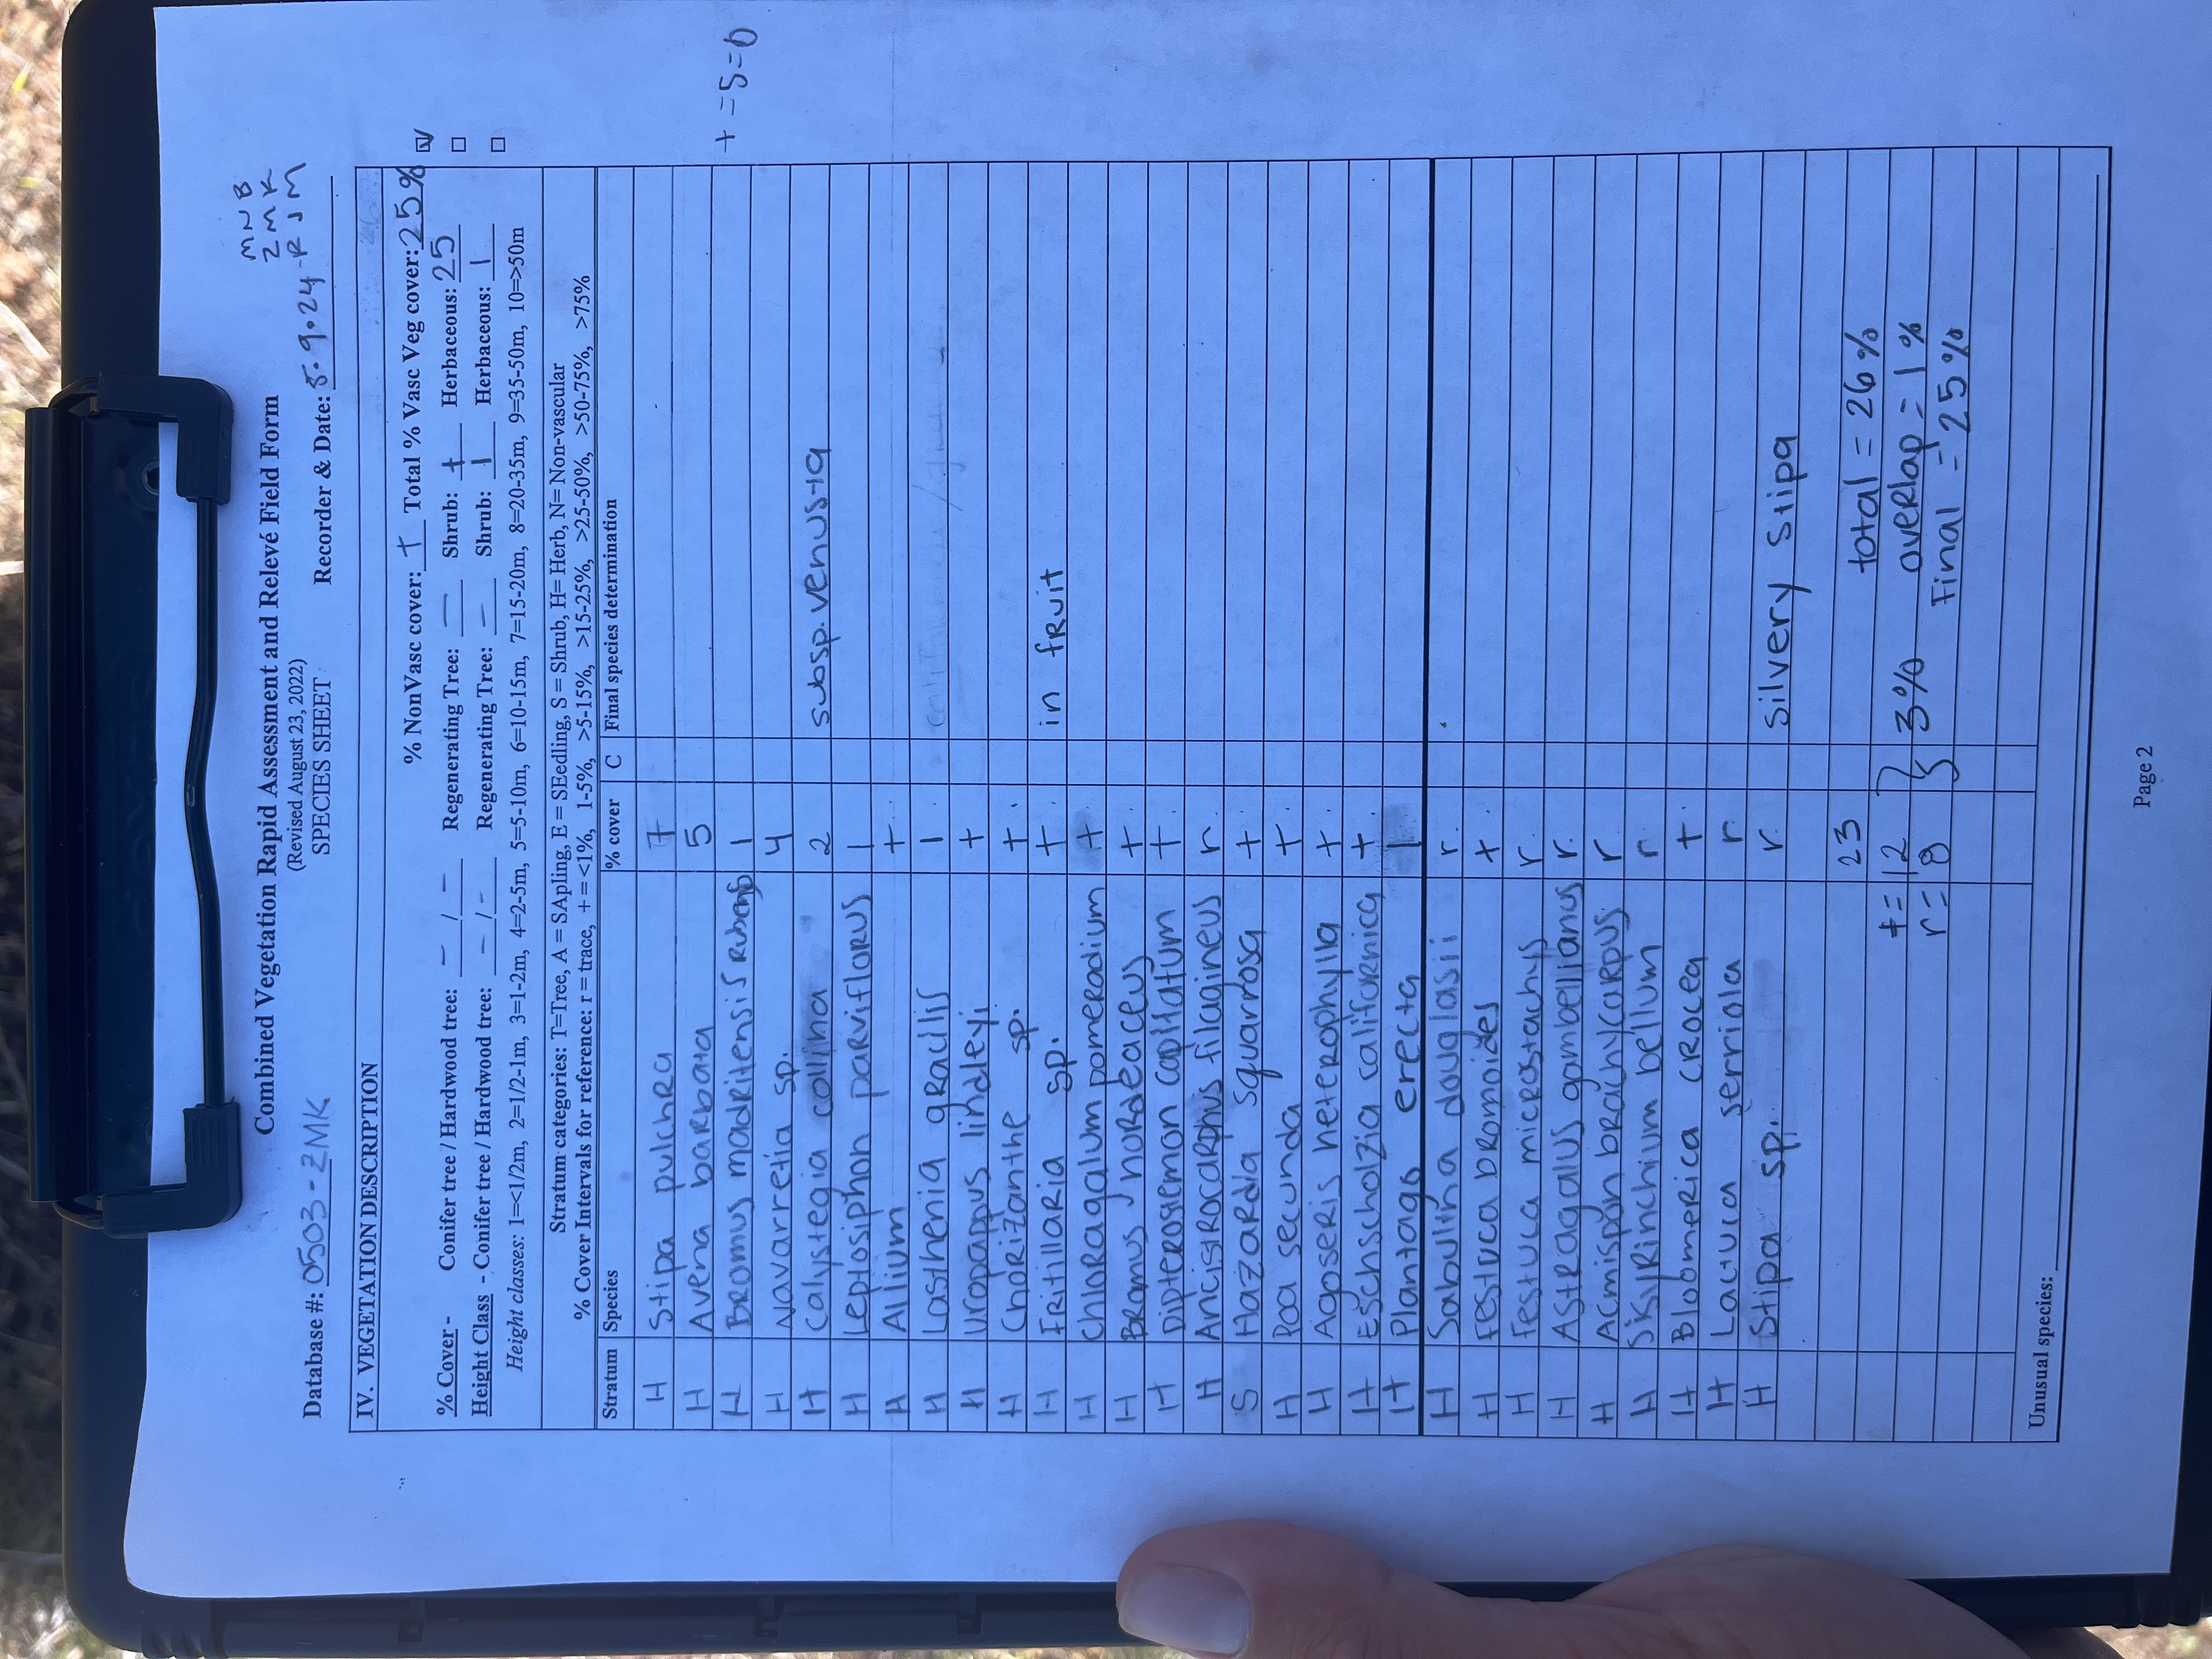 Combined Vegetation Rapid Assessment and Relevé Field Form
(Revised August 23, 2022)
SPECIES SHEET
MNB
ZMK
Database #: 0503-ZMK Recorder & Date: 5.9.24-RJM
IV. VEGETATION DESCRIPTION
% NonVasc cover: + Total % Vasc Veg cover: 25%
% Cover - Conifer tree / Hardwood tree: - / - Regenerating Tree: — Shrub: + Herbaceous: 25
Height Class - Conifer tree / Hardwood tree: - / - Regenerating Tree: - Shrub: 1 Herbaceous: 1
Height classes: 1=<1/2m, 2=1/2-1m, 3=1-2m, 4=2-5m, 5=5-10m, 6=10-15m, 7=15-20m, 8=20-35m, 9=35-50m, 10=>50m
Stratum categories: T=Tree, A = SApling, E = SEedling, S = Shrub, H= Herb, N= Non-vascular
% Cover Intervals for reference: r = trace, + = <1%, 1-5%, >5-15%, >15-25%, >25-50%, >50-75%, >75%
Stratum Species % cover C Final species determination
H Stipa pulchra 7
H Avena barbata 5
H Bromus madritensis rubens 1
+ = 5 = 6
H Navarretia sp. 4
H Calystegia collina 2 subsp. venusta
H Leptosiphon parviflorus 1
H Allium +.
H Lasthenia gracilis 1.
H Uropappus lindleyi +
H Chorizanthe sp. +.
H Fritillaria sp. +. in fruit
H Chloragalum pomeradium +
H Bromus hordeaceus +
H Dipterostemon capitatum +.
H Ancistrocarphus filagineus r.
S Hazardia squarrosa +.
H Poa secunda +.
H Agoseris heterophylla +.
H Eschscholzia californica +.
H Plantago erecta 1
H Sabulina douglasii r.
H Festuca bromoides +
H Festuca microstachys r.
H Astragalus gambellianus r.
H Acmispon brachycarpus r
H Sisyrinchium bellum r.
H Bloomerica crocea +.
H Lactuca serriola r
H Stipa sp. r. silvery stipa
23
total = 26%
+ = 12 } 3% overlap = 1%
r = 8
Final = 25%
Unusual species:
Page 2